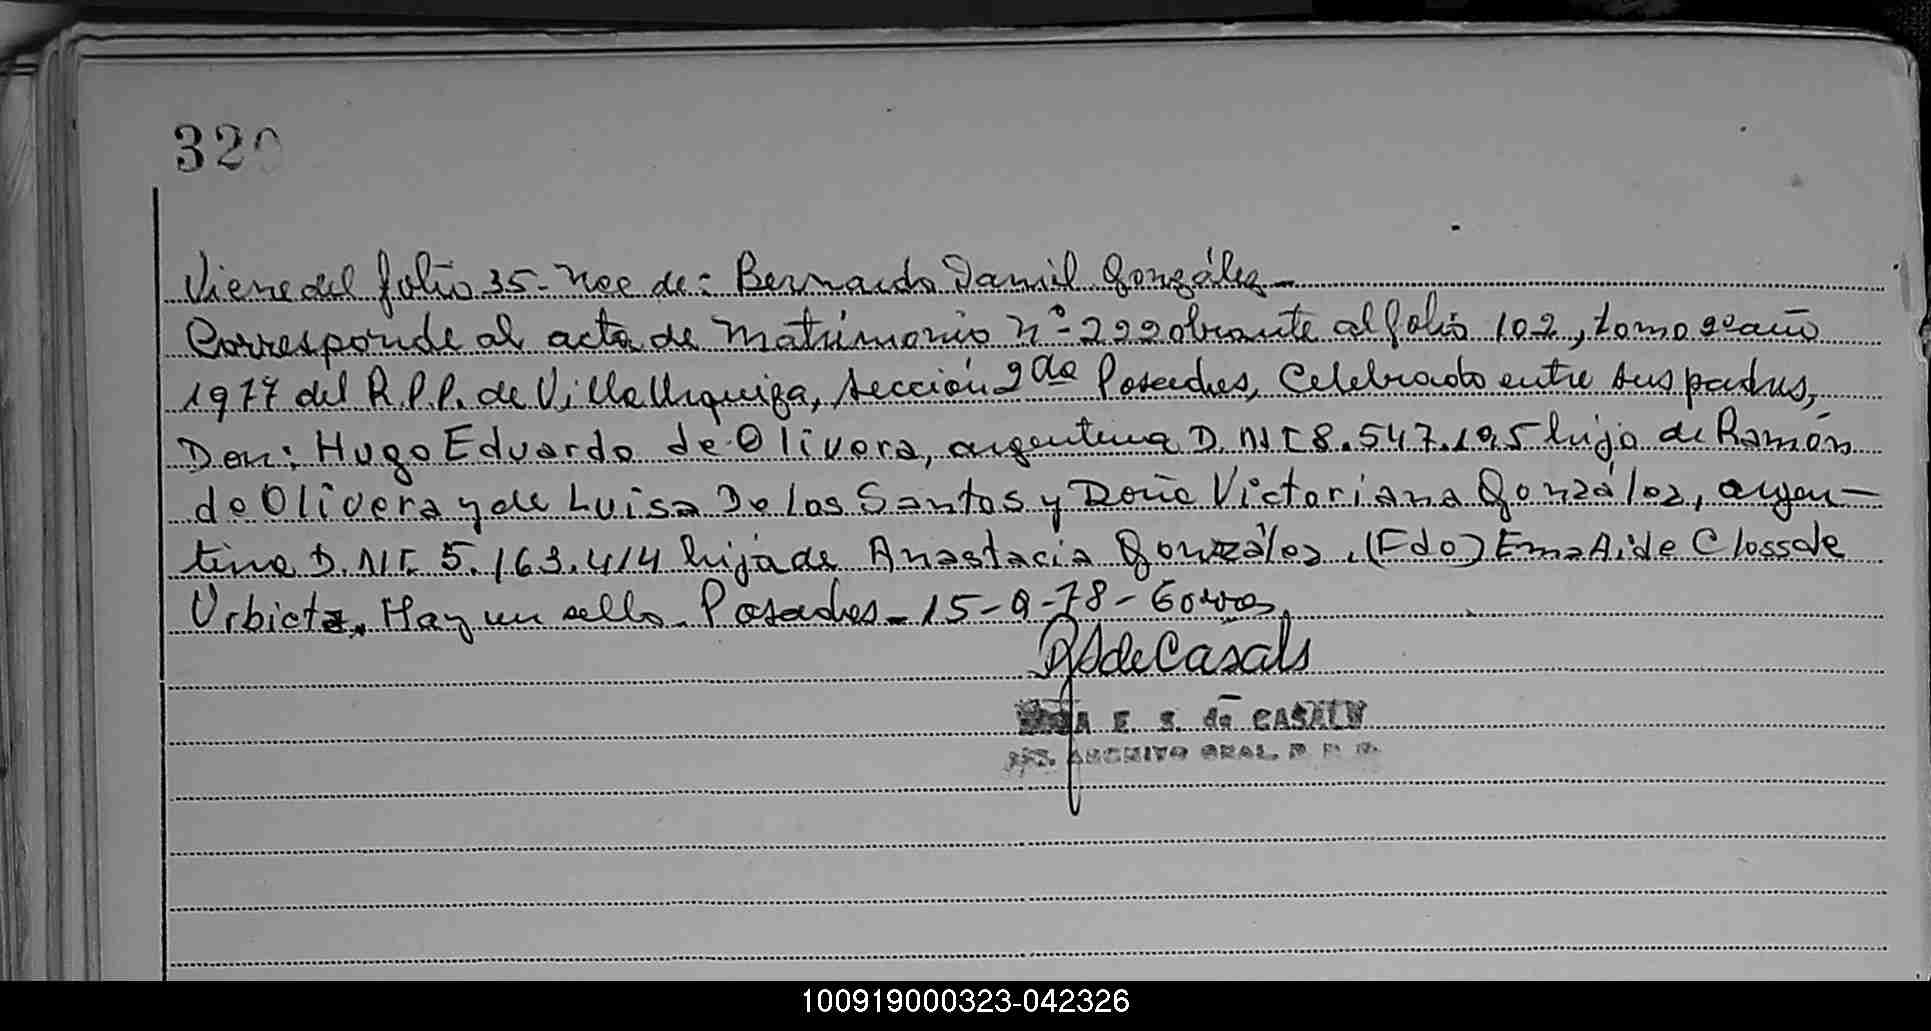 320
Viene del folio 35- Nac de: Bernardo Daniel González-
Corresponde al acta de Matrimonio nº-222 obrante al folio 102, tomo 2º año
1977 del R.P.P. de Villa Urquiza, sección 2da Posadas, Celebrado entre sus padres,
Don: Hugo Eduardo de Olivera, argentino D.N.I 8.547.195 hijo de Ramón
de Olivera y de Luisa De los Santos y Doña Victoriana González, argen-
tina D.N.I. 5.163.414 hija de Anastacia González. (Fdo) Ema Aide Closs de
Urbieta. Hay un sello. Posadas- 15-9-78-
de Casals
A E. S. de CASALS
ARCHIVO GRAL.
100919000323-042326